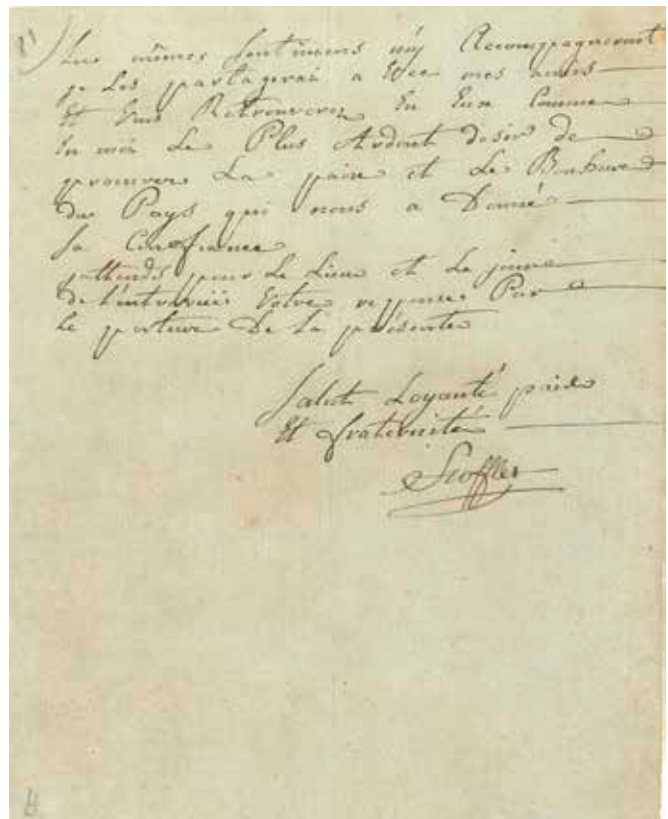 Les mêmes sentimens m'y Accompagneront
je Les partagerai a Vec mes amis
Et Vous Retrouverez En Eux Comme
En moi Le Plus Ardent desir de
prouver La paix et Le Bonheur
du Pays qui nous a Donné
Sa Confiance
j'attends pour Le Lieu et Le jour
De l'entrevüe Votre reponse Par
Le porteur De La présente
Salut Loyauté paix
Et fraternité
Stofflet